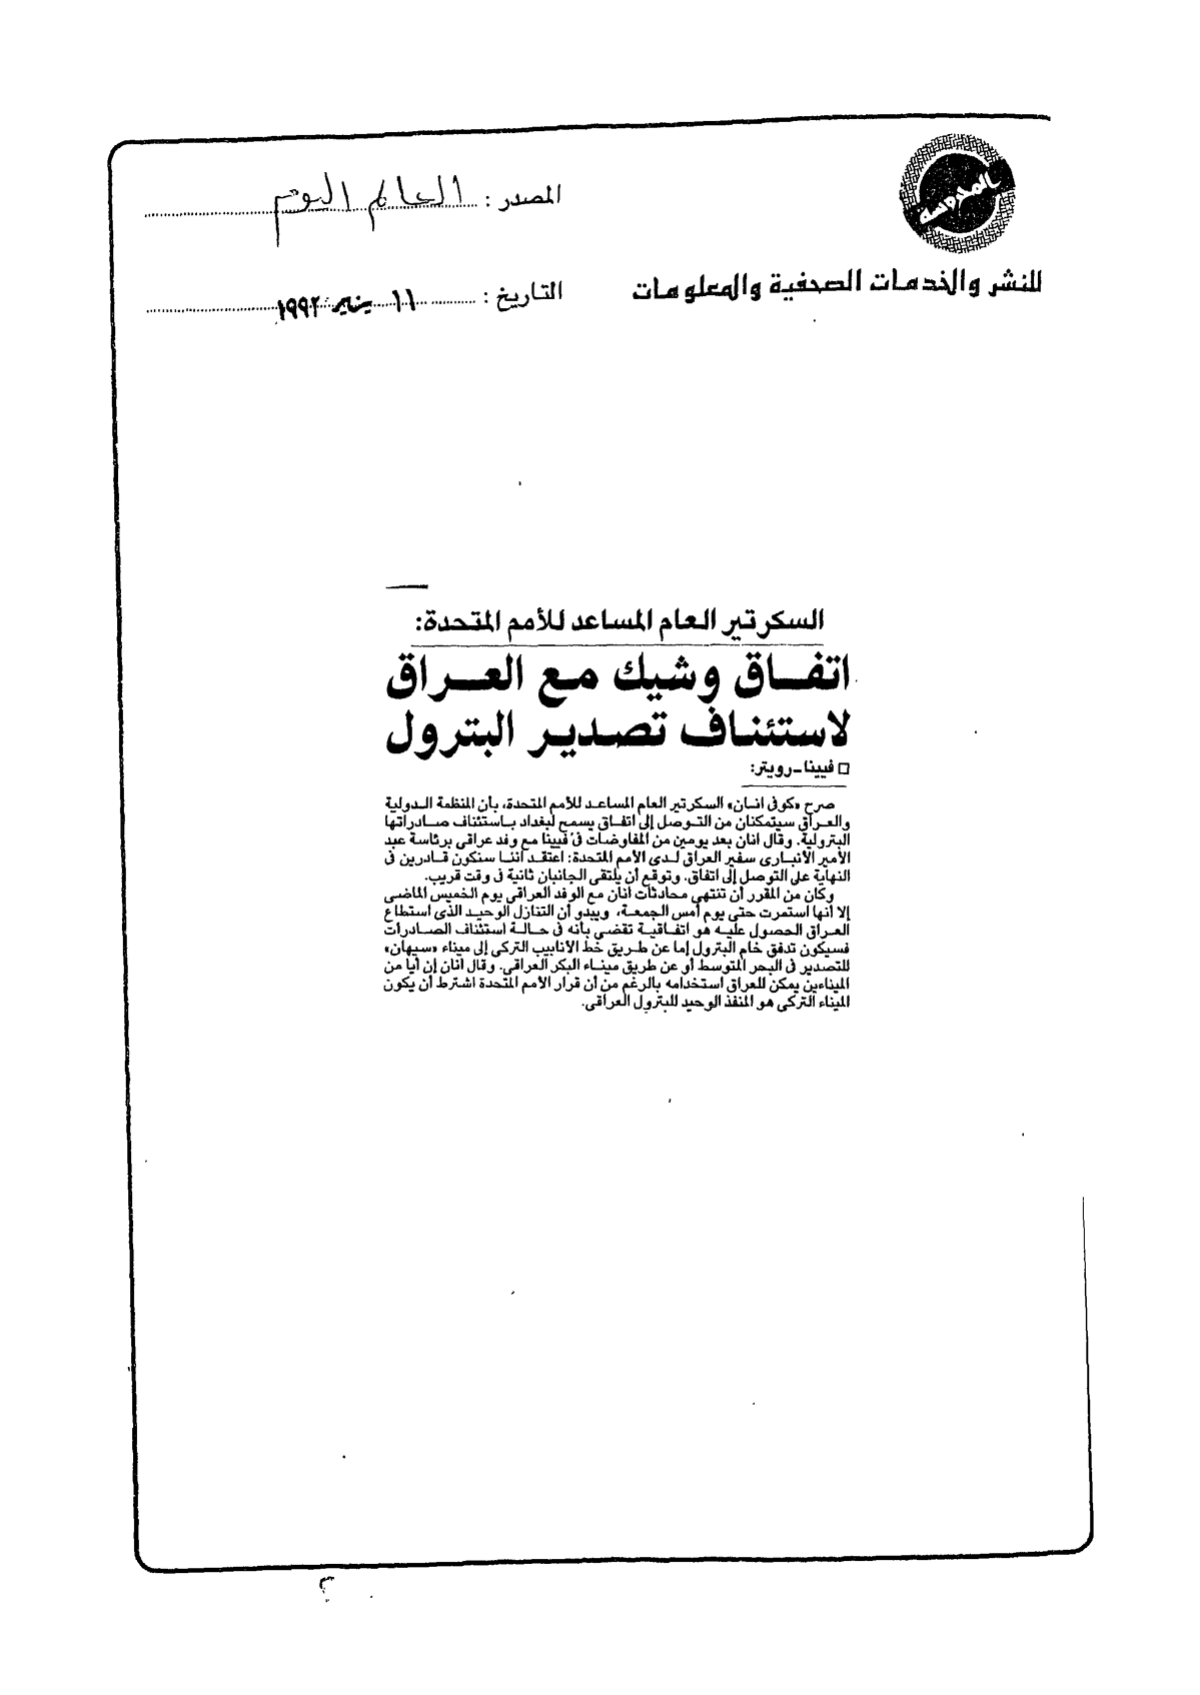 المحروسة
للنشر والخدمات الصحفية والمعلومات
المصدر : العالم اليوم
التاريخ : ١١ يناير ١٩٩٢
السكرتير العام المساعد للأمم المتحدة:
اتفاق وشيك مع العراق
لاستئناف تصدير البترول
□ فيينا-رويتر:
صرح «كوفى انان» السكرتير العام المساعد للأمم المتحدة، بأن المنظمة الدولية
والعراق سيتمكنان من التوصل إلى اتفاق يسمح لبغداد باستئناف صادراتها
البترولية. وقال انان بعد يومين من المفاوضات فى فيينا مع وفد عراقى برئاسة عبد
الأمير الأنبارى سفير العراق لدى الأمم المتحدة: اعتقد أننا سنكون قادرين فى
النهاية على التوصل إلى اتفاق. وتوقع أن يلتقى الجانبان ثانية فى وقت قريب.
وكان من المقرر أن تنتهى محادثات انان مع الوفد العراقى يوم الخميس الماضى
إلا أنها استمرت حتى يوم أمس الجمعة، ويبدو أن التنازل الوحيد الذى استطاع
العراق الحصول عليه هو اتفاقية تقضى بأنه فى حالة استئناف الصادرات
فسيكون تدفق خام البترول إما عن طريق خط الأنابيب التركى إلى ميناء «سيهان»
للتصدير فى البحر المتوسط أو عن طريق ميناء البكر العراقى. وقال انان إن أيا من
الميناءين يمكن للعراق استخدامه بالرغم من أن قرار الأمم المتحدة اشترط أن يكون
الميناء التركى هو المنفذ الوحيد للبترول العراقى.